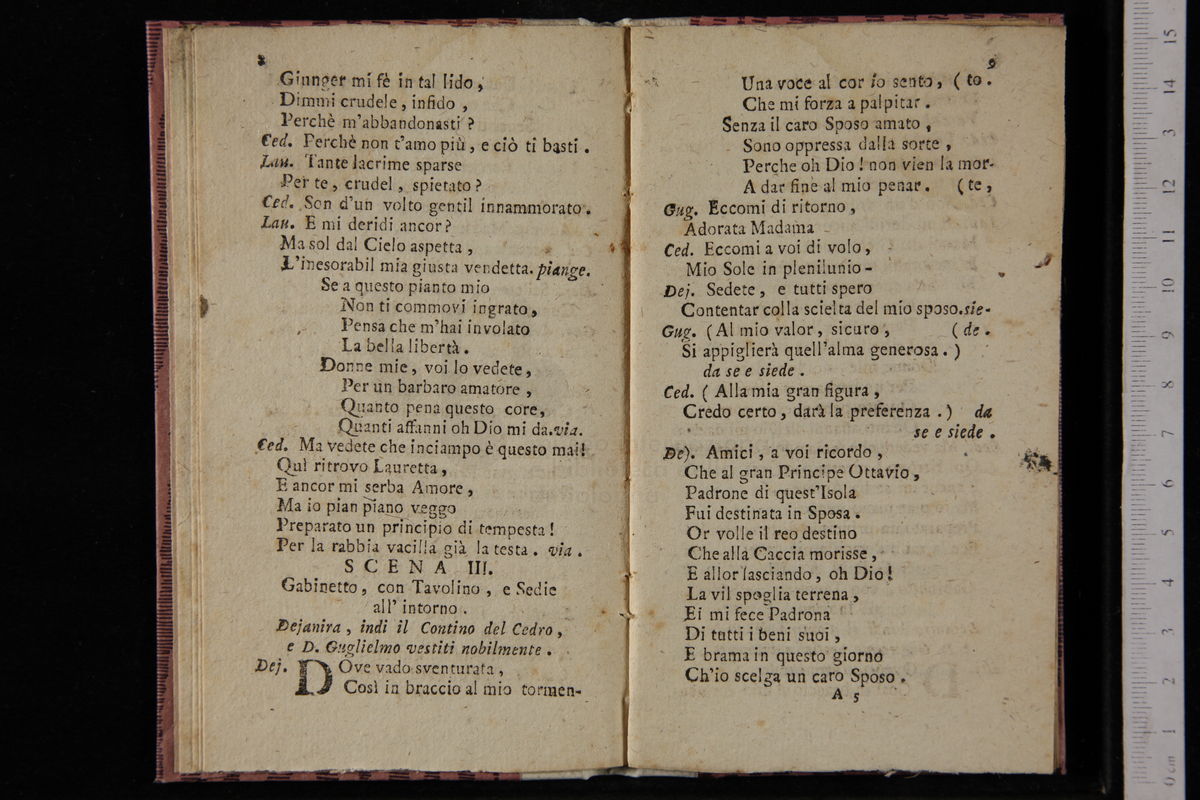 8
Giunger mi fè in tal lido,
Dimmi crudele, infido,
Perchè m'abbandonasti?
Ced. Perchè non t'amo più, e ciò ti basti.
Lau. Tante lacrime sparse
Per te, crudel, spietato?
Ced. Son d'un volto gentil innammorato.
Lau. E mi deridi ancor?
Ma sol dal Cielo aspetta,
L'inesorabil mia giusta vendetta. piange.
Se a questo pianto mio
Non ti commovi ingrato,
Pensa che m'hai involato
La bella libertà.
Donne mie, voi lo vedete,
Per un barbaro amatore,
Quanto pena questo core,
Quanti affanni oh Dio mi da. via.
Ced. Ma vedete che inciampo è questo mai!
Quì ritrovo Lauretta,
E ancor mi serba Amore,
Ma io pian piano veggo
Preparato un principio di tempesta!
Per la rabbia vacilla già la testa. via.
SCENA III.
Gabinetto, con Tavolino, e Sedie
all' intorno.
Dejanira, indi il Contino del Cedro,
e D. Guglielmo vestiti nobilmente.
Dej. DOve vado sventurata,
Così in braccio al mio tormen-
9
Una voce al cor io sento, (to.
Che mi forza a palpitar.
Senza il caro Sposo amato,
Sono oppressa dalla sorte,
Perche oh Dio! non vien la mor-
A dar fine al mio penar. (te,
Gug. Eccomi di ritorno,
Adorata Madama
Ced. Eccomi a voi di volo,
Mio Sole in plenilunio-
Dej. Sedete, e tutti spero
Contentar colla scielta del mio sposo. sie-
Gug. (Al mio valor, sicuro, (de.
Si appiglierà quell'alma generosa.)
da se e siede.
Ced. (Alla mia gran figura,
Credo certo, darà la preferenza.) da
se e siede.
Dej. Amici, a voi ricordo,
Che al gran Principe Ottavio,
Padrone di quest'Isola
Fui destinata in Sposa.
Or volle il reo destino
Che alla Caccia morisse,
E allor lasciando, oh Dio!
La vil spoglia terrena,
Ei mi fece Padrona
Di tutti i beni suoi,
E brama in questo giorno
Ch'io scelga un caro Sposo.
A 5
0 cm 1 2 3 4 5 6 7 8 9 10 11 12 13 14 15